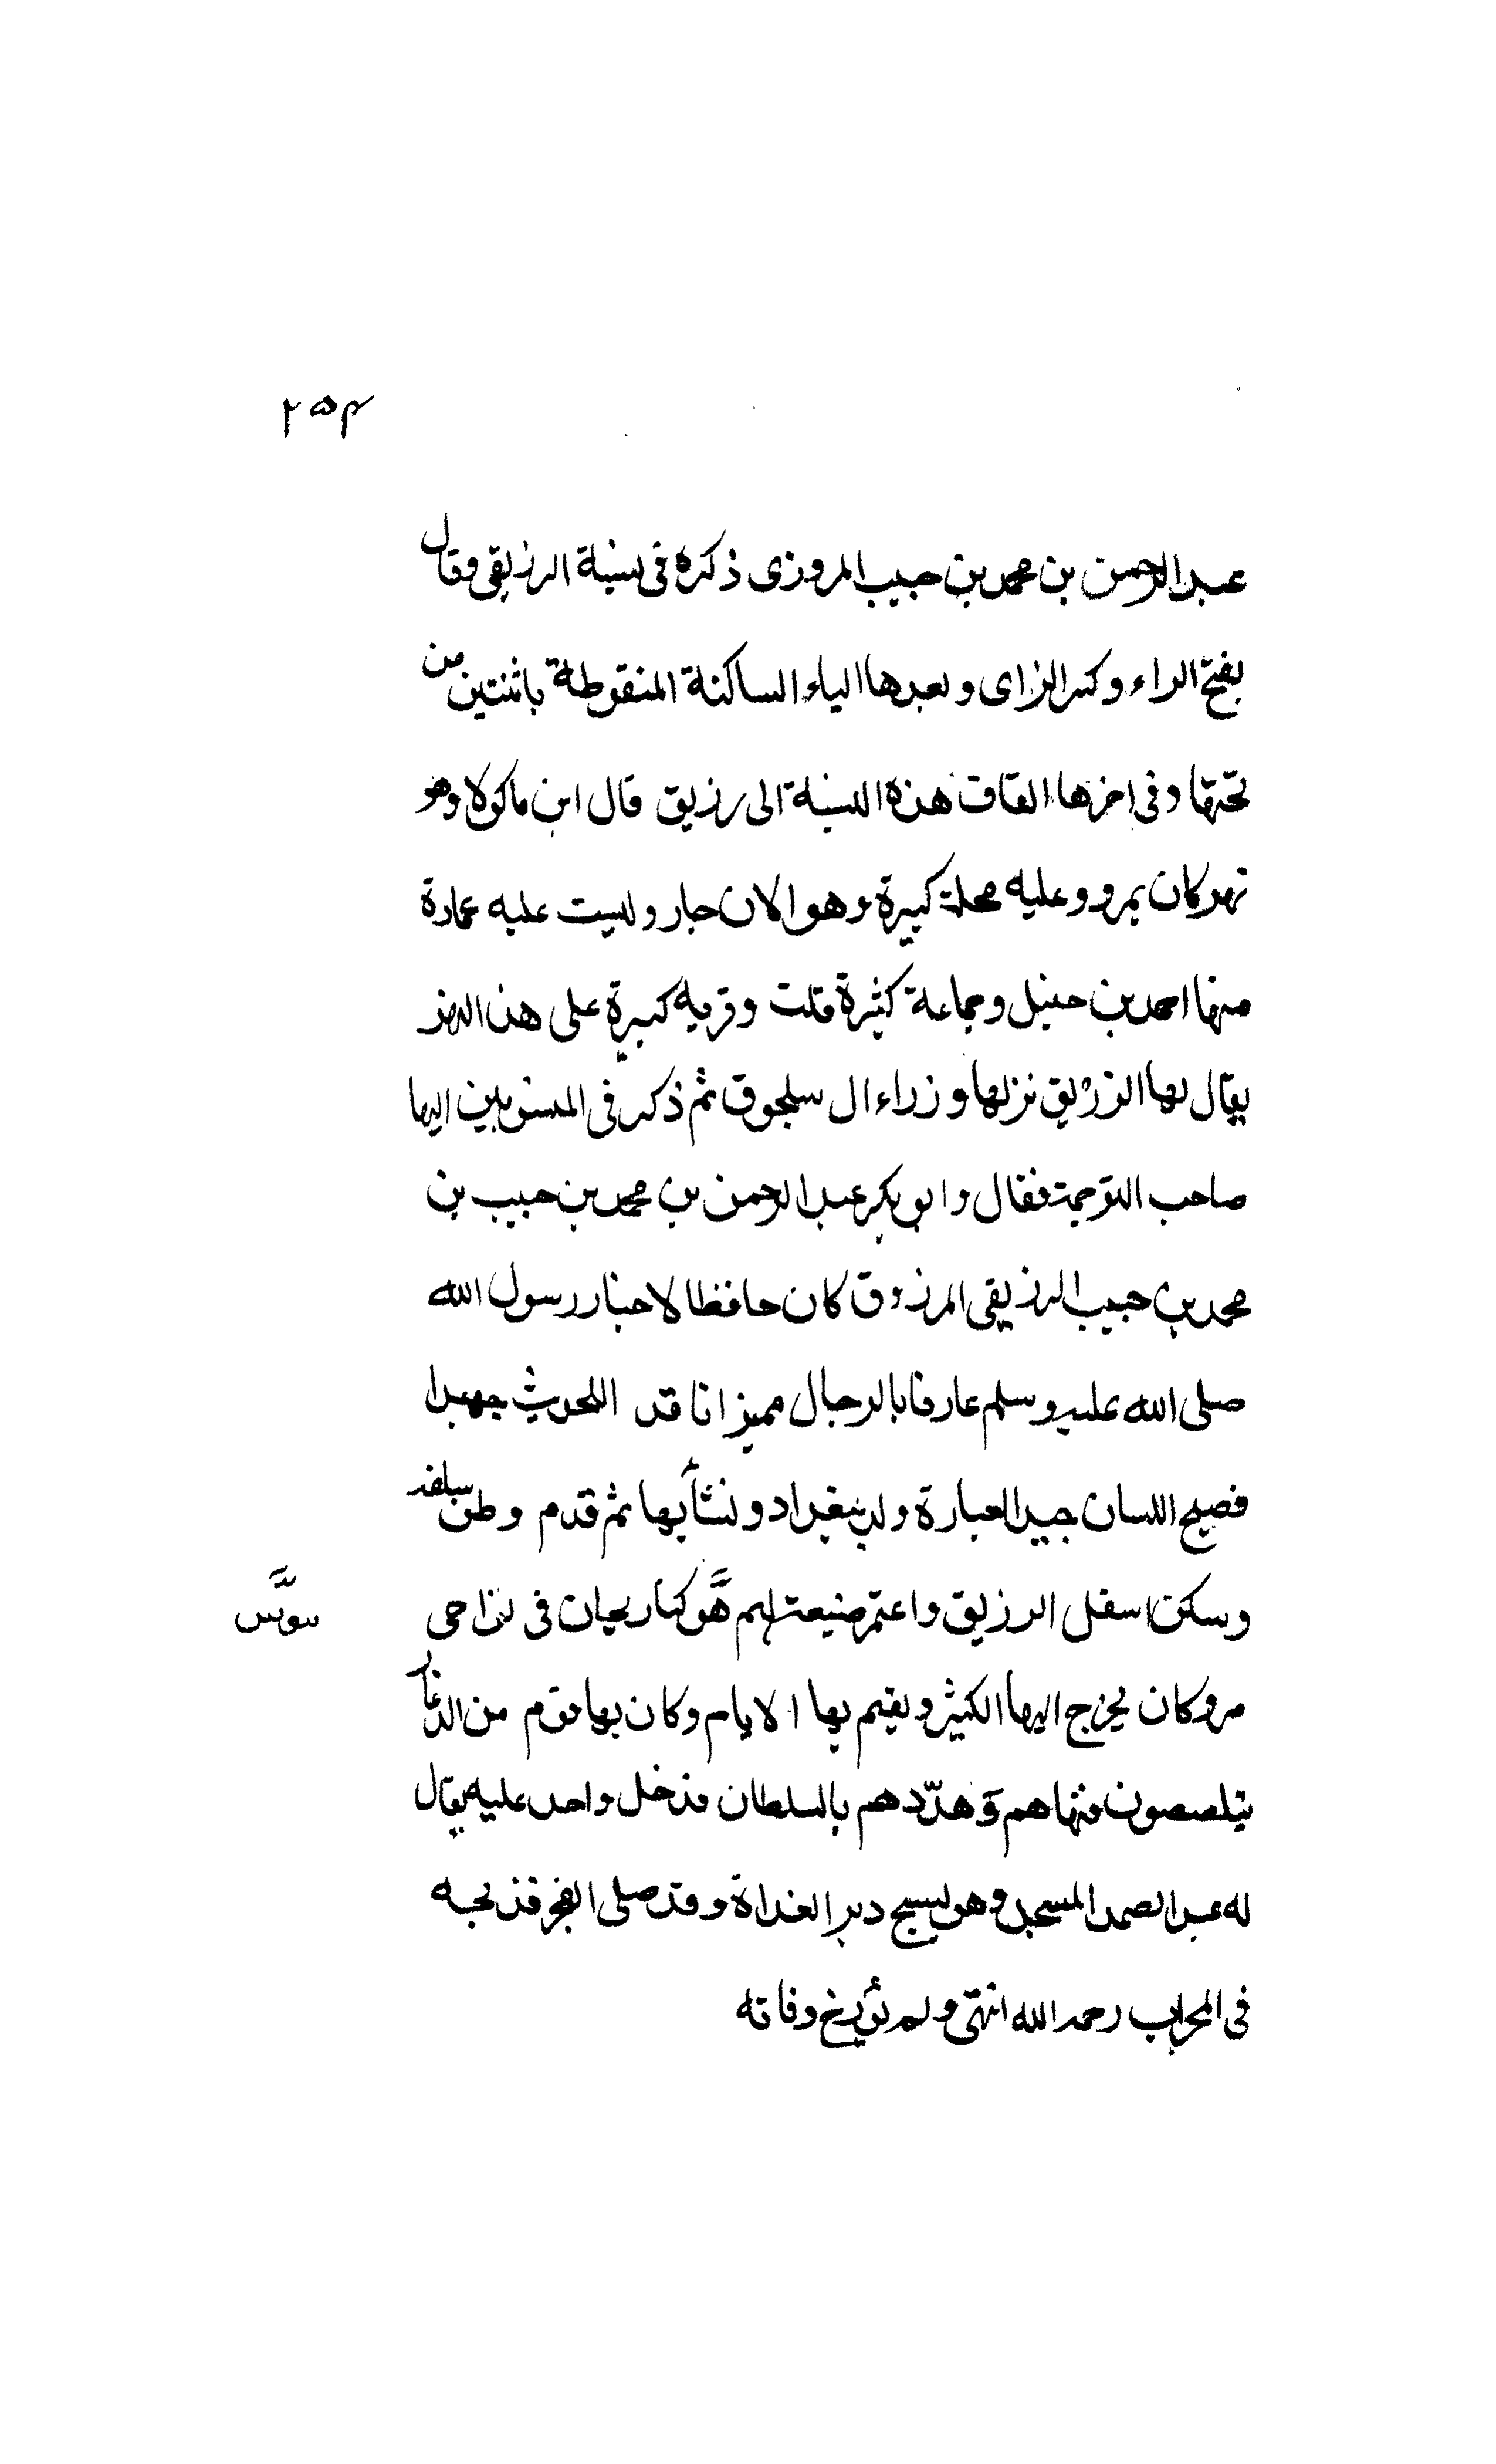 ٢٥٤
عبد الرحمن بن محمد بن حبيب المروزى ذكره فى نسبة الرزيقى وقال
بفتح الراء وكسر الزاى وبعدها الياء الساكنة المنقوطة باثنتين من
تحتها وفى اخرها القاف هذه النسبة الى رزيق قال ابن ماكولا وهو
نهر كان بمرو وعليه محلة كبيرة وهو الان جار وليست عليه عمارة
منها احمد بن حنبل وجماعة كثيرة قلت وقريه كبيرة على هذا النهر
يقال لها الرزيق نزلها وزراء ال سلجوق ثم ذكر فى المنسوبين اليها
صاحب الترجمة فقال وابو بكر عبد الرحمن بن محمد بن حبيب بن
محمد بن حبيب الرزيقى المرزوق كان حافظا لاخبار رسول الله
صلى الله عليه وسلم عارفا بالرجال مميزا ناقد الحديث جهبدا
فصيح اللسان جيد العبارة ولد ببغداد ونشأ بها ثم قدم وطن سلفه
وسكن اسفل الرزيق واعتمر ضيعة لهم كنارىجان فى نواحى
سوس
مرو كان يخرج اليها الكثير ويقيم بها الايام وكان بها قوم من الدعار
يتلصصون فنهاهم وهدّدهم بالسلطان فدخل واحد عليه يقال
له عبد الصمد المسجد وهو يسبح دبر الغداة وقد صلى الفجر فذبحه
فى المحراب رحمه الله انتهى ولم يؤرخ وفاته